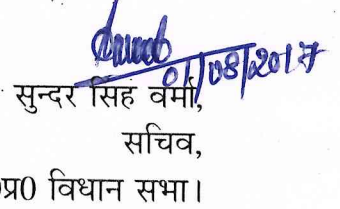 01/08/2017
सुन्दर सिंह वर्मा,
सचिव,
प्र0 विधान सभा।